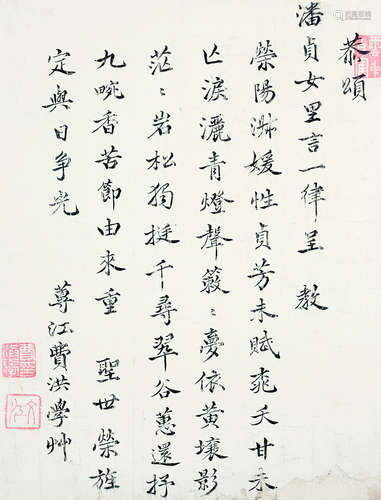 恭頌
潘貞女里言一律呈 教
榮陽淑媛性貞芳未賦夭夭甘未
亡淚灑青燈聲簌〻夢依黃壤影
茫〻岩松獨挺千尋翠谷蕙還抒
九畹香苦節由來重 聖世榮旌
定與日爭光 蓴江費洪學艸